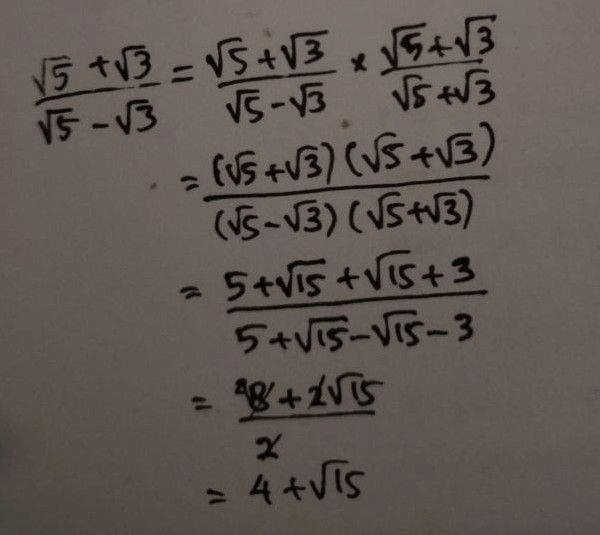 (√5 + √3)/(√5 − √3) = (√5 + √3)/(√5 − √3) × (√5 + √3)/(√5 + √3)
= (√5 + √3)(√5 + √3)/(√5 − √3)(√5 + √3)
= (5 + √15 + √15 + 3)/(5 + √15 − √15 − 3)
= (⁴8 + 2√15)/2
= 4 + √15